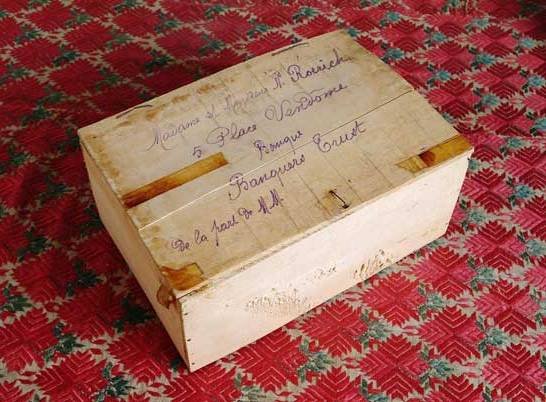 Madame et Monsieur N. Rœrich
5 Place Vendôme
Banque
Banquers Trust
De la part de M.M.